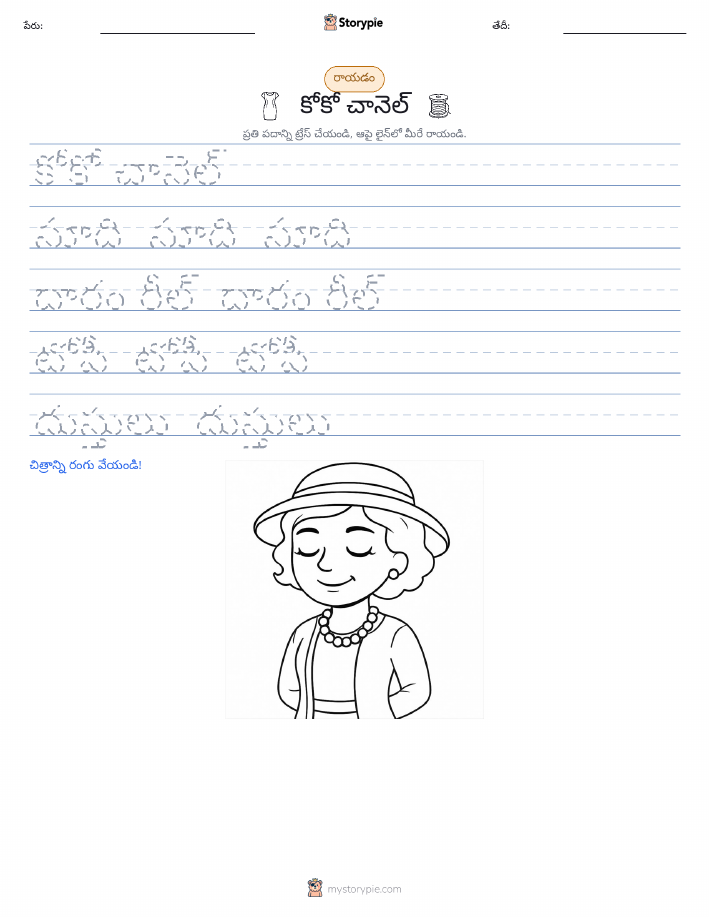 పేరు:
Storypie
తేదీ:
రాయడం
కోకో చానెల్
ప్రతి పదాన్ని ట్రేస్ చేయండి, ఆపై లైన్‌లో మీరే రాయండి.
కోకో చానెల్
సూది సూది సూది
దారం రీల్ దారం రీల్
టోపీ టోపీ టోపీ
దుస్తులు దుస్తులు
చిత్రాన్ని రంగు వేయండి!
mystorypie.com